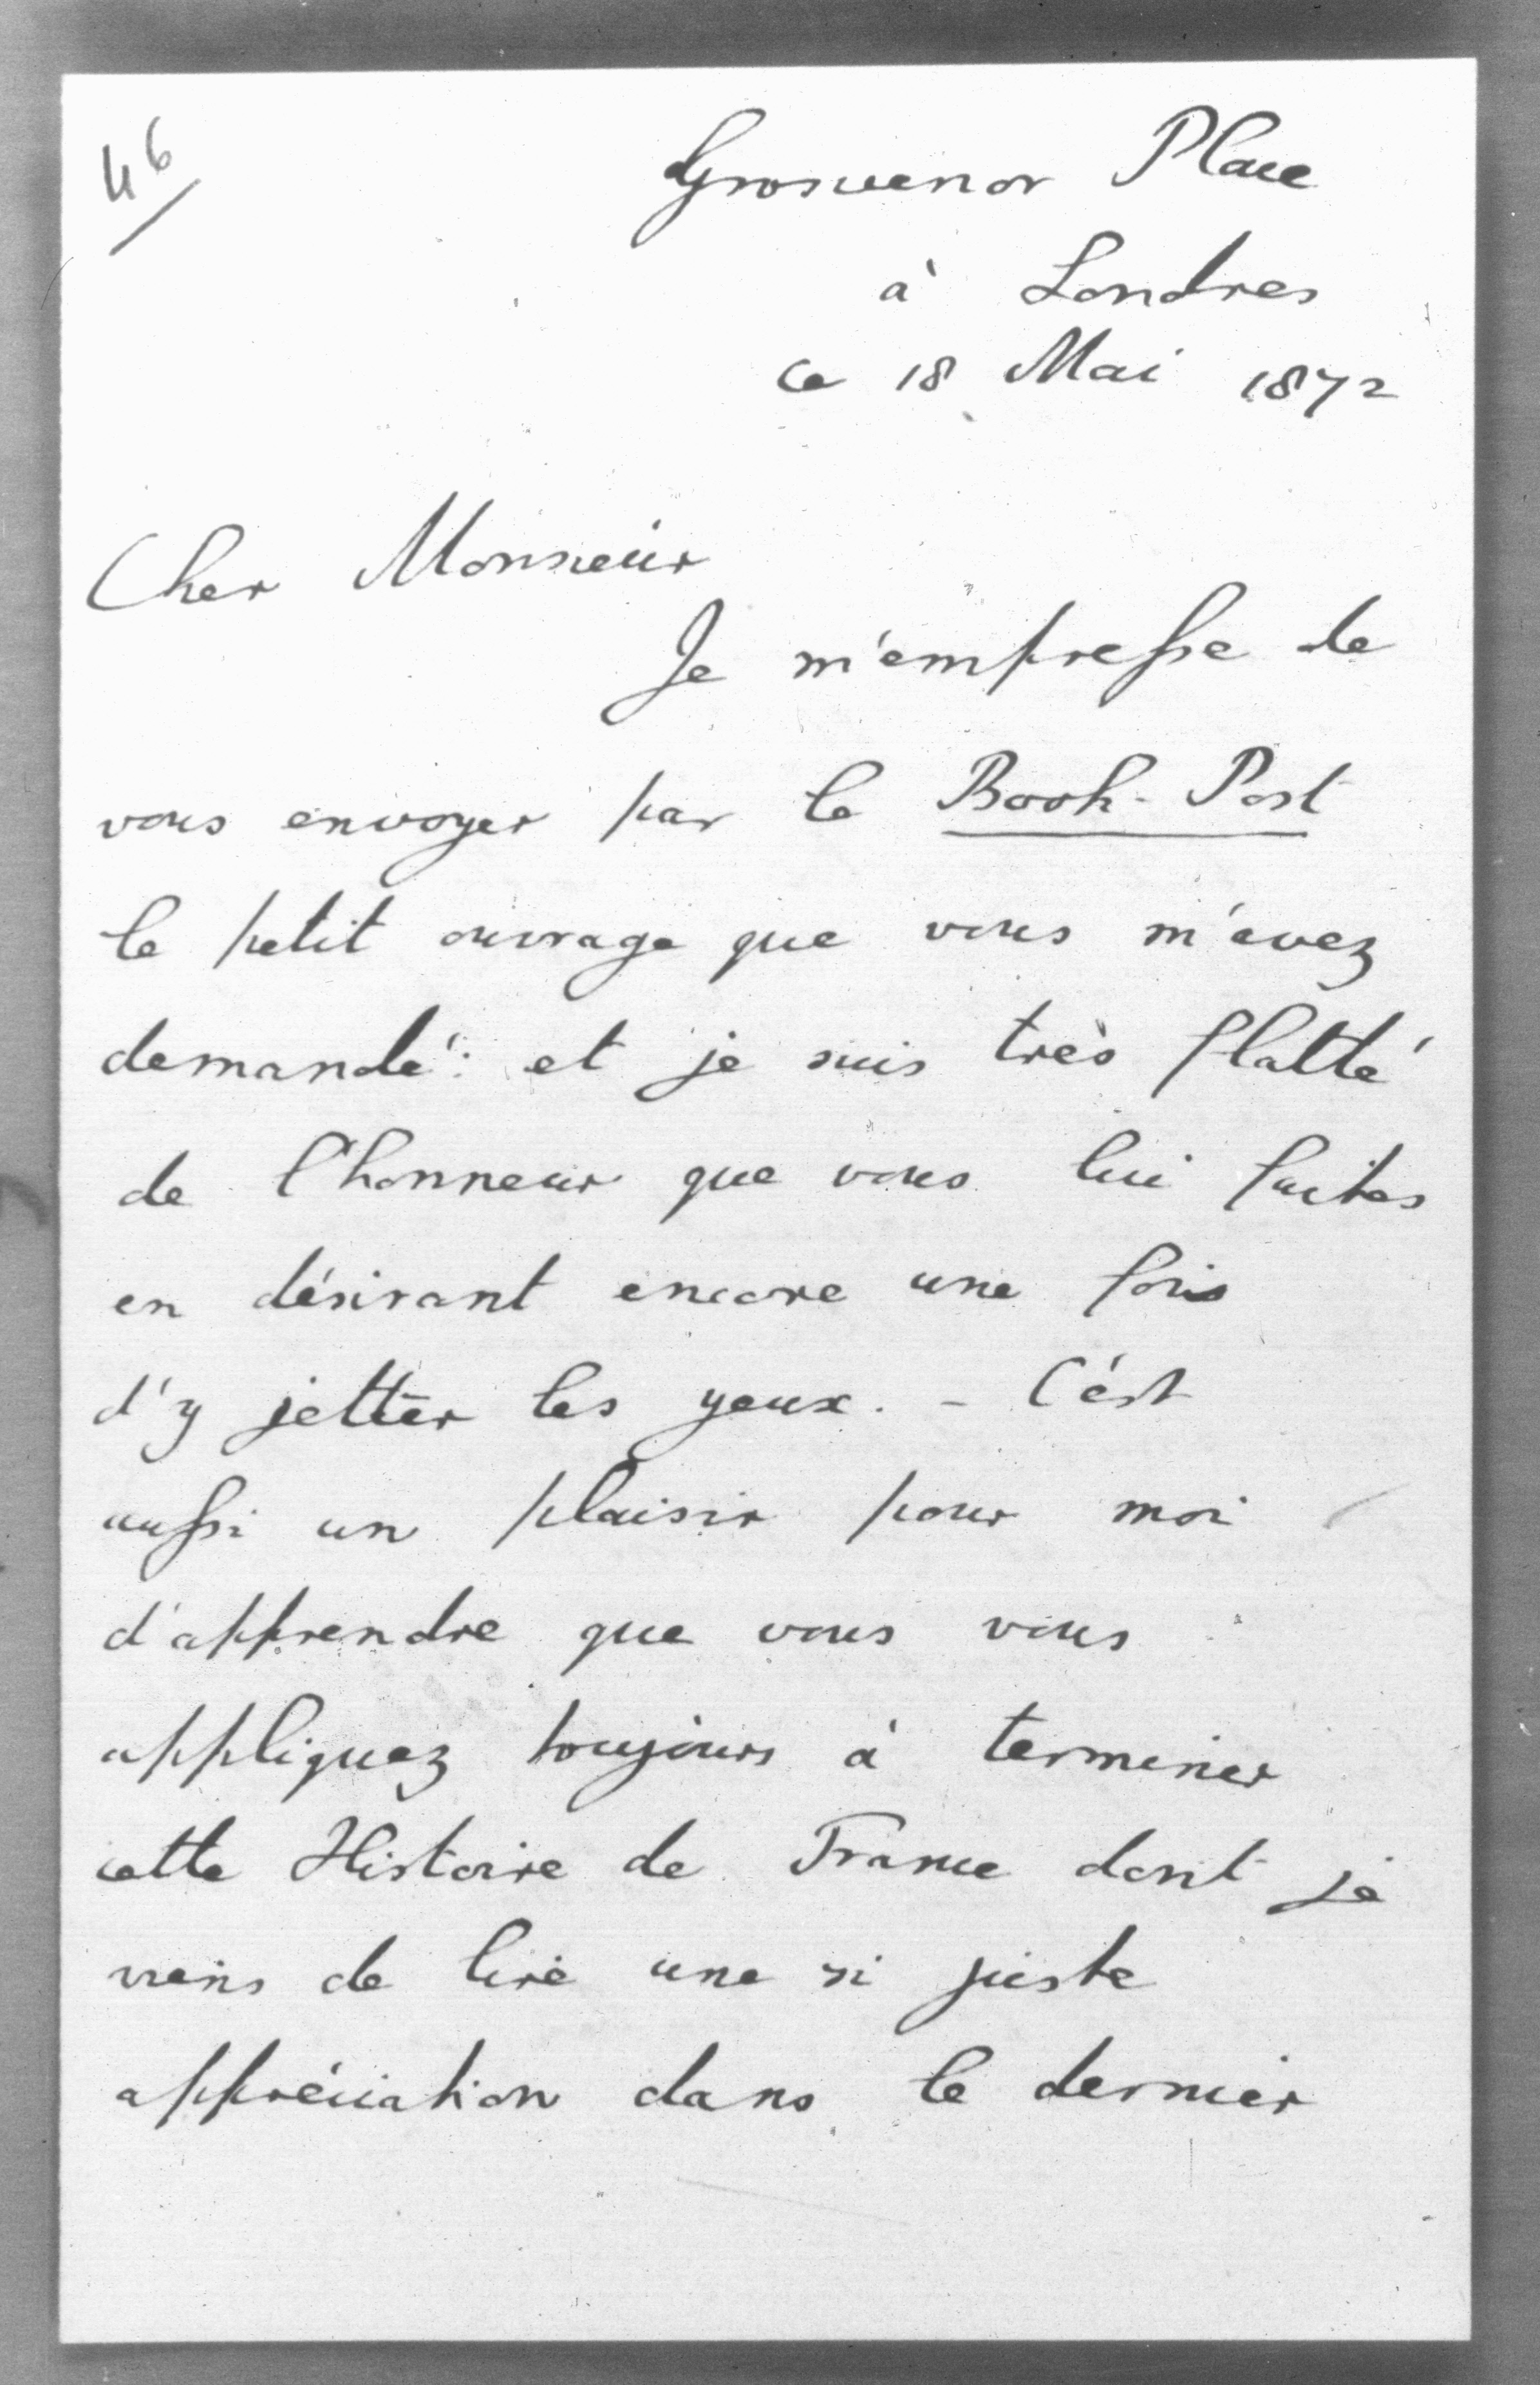 46
Grosvenor Place
à Londres
ce 18 Mai 1872
Cher Monsieur
Je m'empresse de
vous envoyer par le Book-Post
le petit ouvrage que vous m'avez
demandé: et je suis très flatté
de l'honneur que vous lui faites
en désirant encore une fois
d'y jetter les yeux. - C'est
aussi un plaisir pour moi
d'apprendre que vous vous
appliquez toujours à terminer
cette Histoire de France dont je
viens de lire une si juste
appréciation dans le dernier